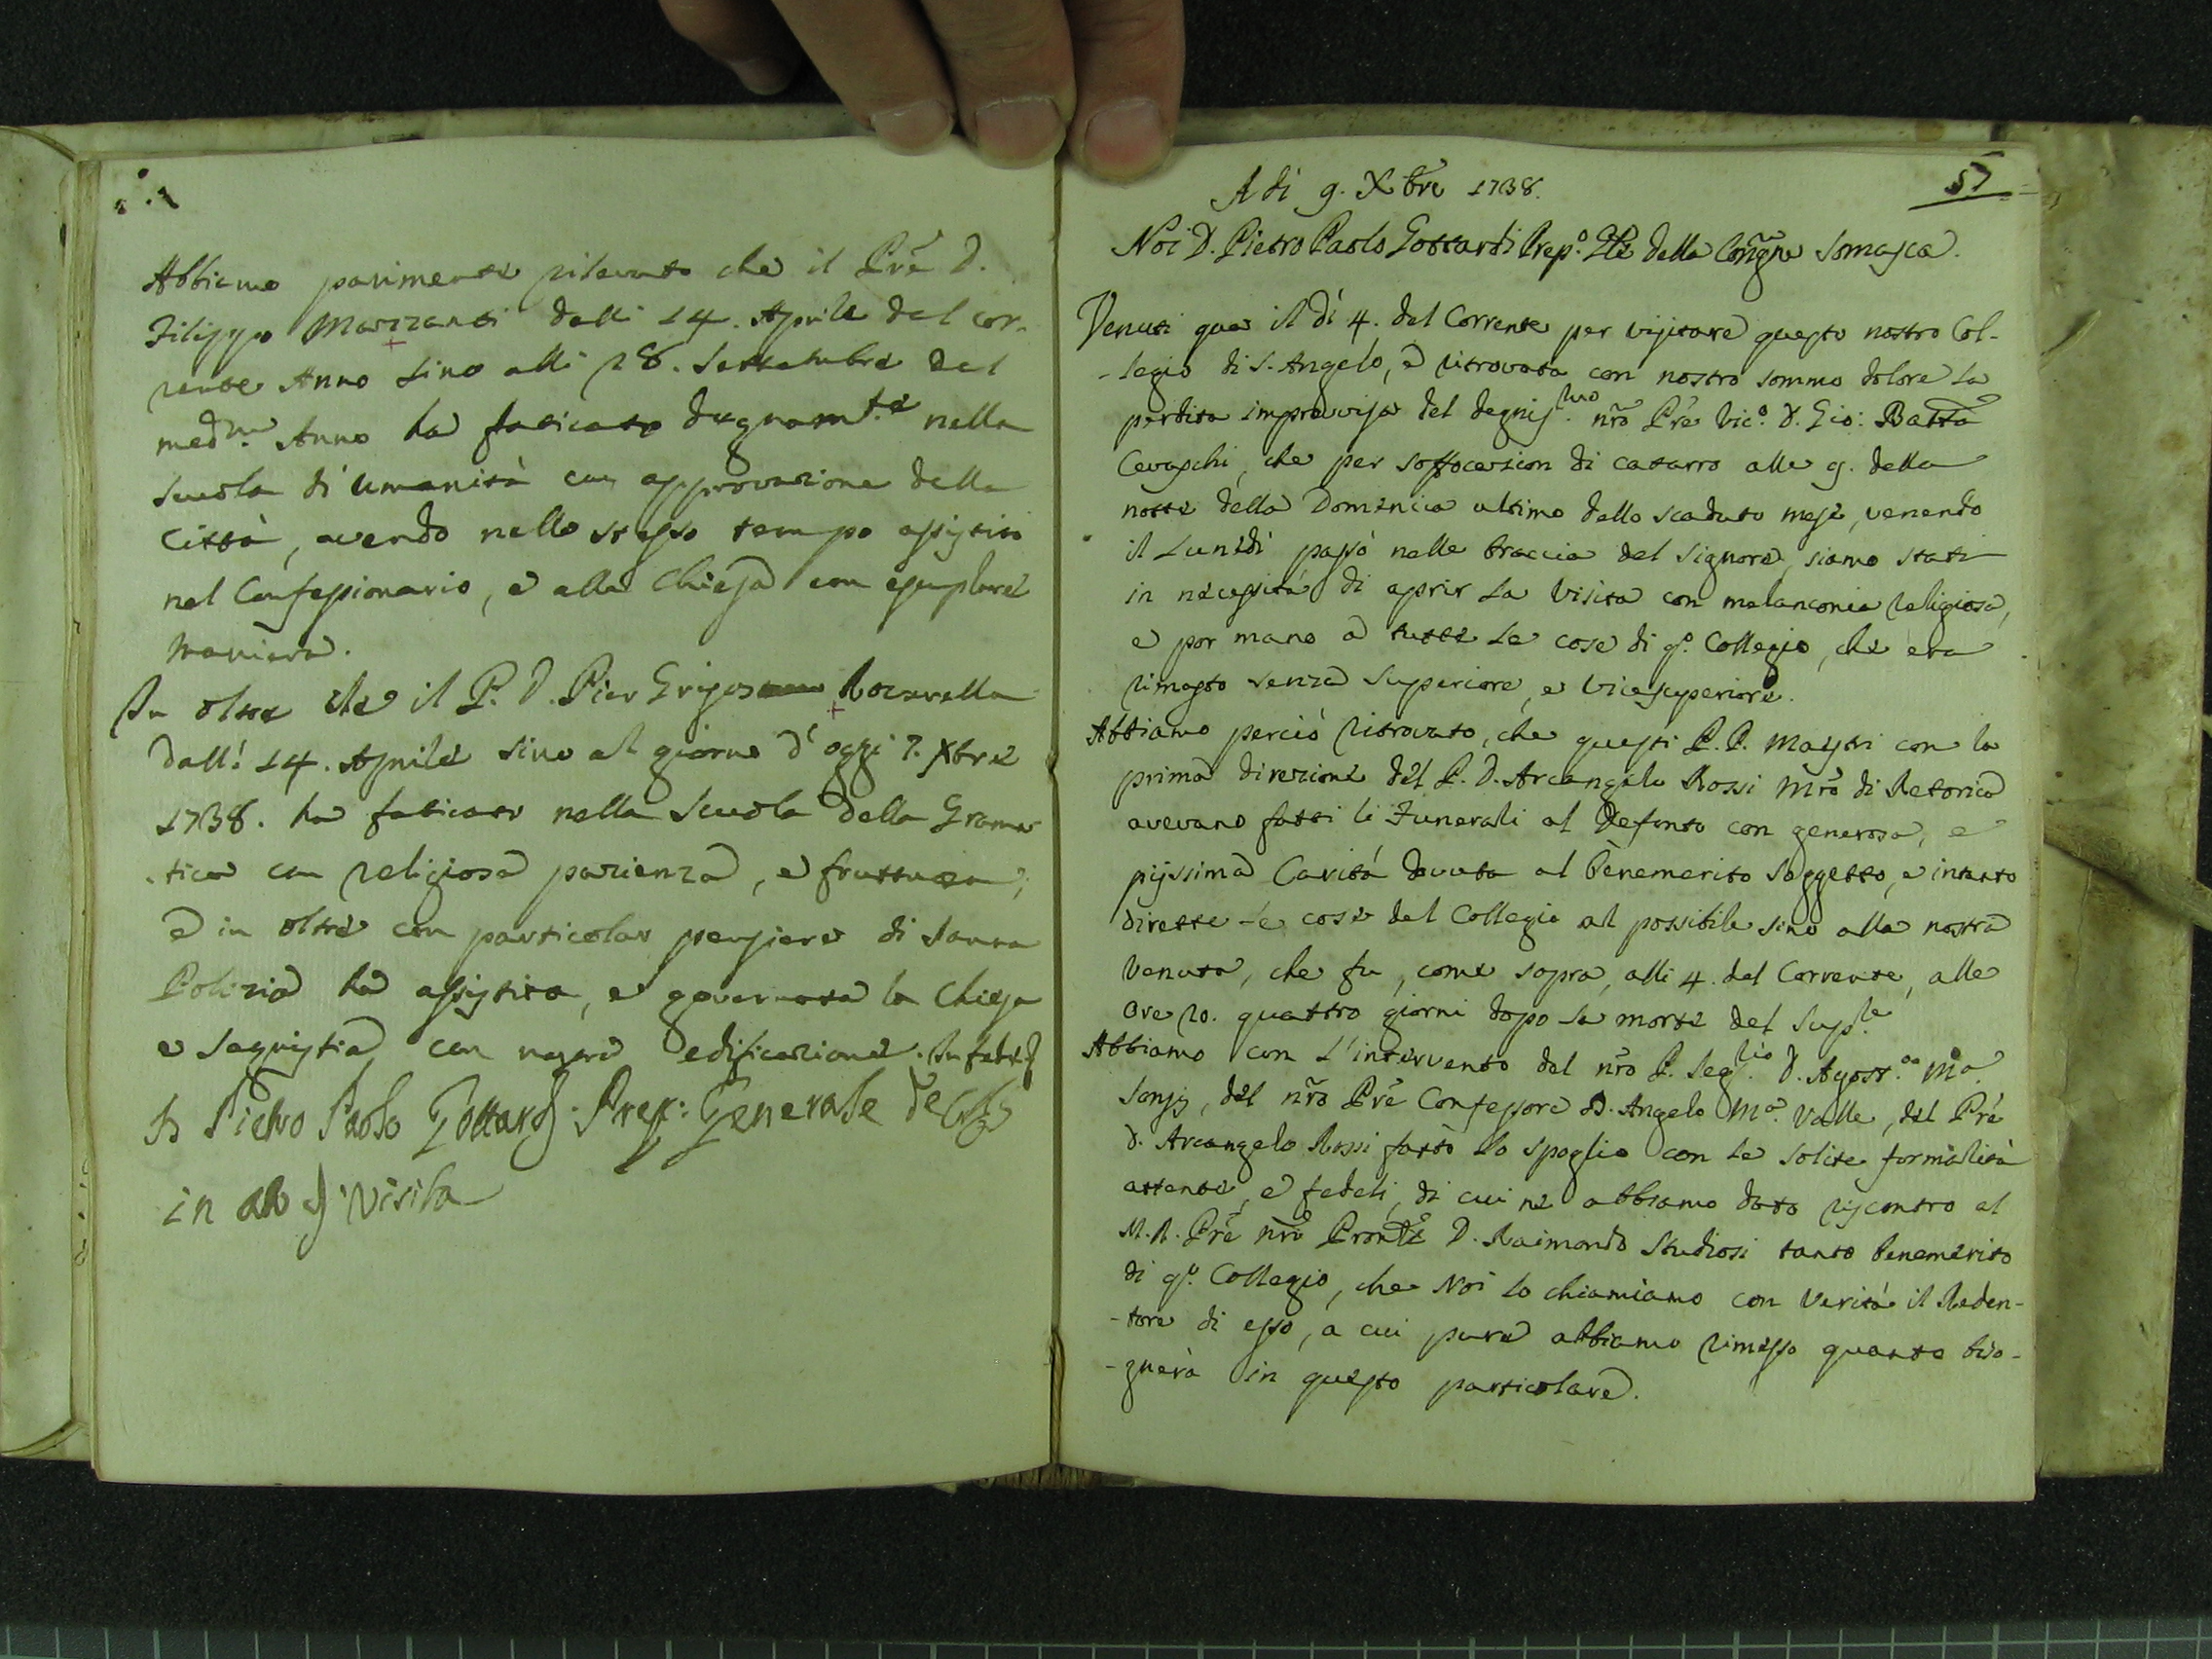 Abbiamo parimente rilevato che il Pre D.
Filippo Marzzanti dalli 14. Aprile del cor-
rente Anno sino alli 28. Settembre del
med.mo Anno ha faticato degnam.te nella
scuola di Umanità con approvazione della
Città, avendo nello stesso tempo assistito
nel Confessionario, e alla Chiesa con esemplare
maniera.
In oltre che il P. D. Pier Grigos Rocavella
dall: 14. Aprile sino al giorno d'oggi 7. Xbre
1738. ha faticato nella Scuola della Grama-
-tica con religiosa pazienza, e fruttuosa;
e in oltre con particolar pensiere di Santa
Polizia ha assistito, e governata la Chiesa
e Sagristia con nostra edificazione. In fede
Io Pietro Paolo Gottardi Prep: Generale
in atto di Visita
A dì 9. Xbre 1738.
57
Noi D. Pietro Paolo Gottardi Prep.o Gle della Congne Somasca.
Venuti qua il dì 4. del Corrente per visitare questo nostro Col-
-legio di S. Angelo, e ritrovata con nostro sommo dolore la
perdita improvvisa del degniss.mo nro Pre Vic.o D. Gio: Batta
Cevaschi, che per soffocazion di catarro alle 9. della
notte della Domenica ultima dello scaduto mese, venendo
il Lunedì passò nelle braccia del Signore, siamo stati
in necessità di aprir la Visita con melanconia religiosa,
e por mano a tutte le cose di q.o Collegio, che era
rimasto senza Superiore, e Vicesuperiore.
Abbiamo perciò ritrovato, che questi P.P. Maestri con la
prima direzione del P. D. Arcangelo Rossi Mro di Retorica
avevano fatti li Funerali al Defonto con generosa, e
pijssima Carità dovuta al Benemerito Soggetto, e intanto
dirette le cose del Collegio al possibile sino alla nostra
Venuta, che fu, come sopra, alli 4. del Corrente, alle
Ore 20. quattro giorni dopo la morte del Sup.re
Abbiamo con l'intervento del nro P. Seg.rio D. Agost.o M.a
Sonzj, del nro Pre Confessore D. Angelo M.a Valle, del Pre
D. Arcangelo Rossi fatto lo spoglio con le solite formalità
attente, e fedeli, di cui ne abbiamo dato riscontro al
M.R. Pre nro Pronle D. Raimondo Studiosi tanto benemerito
di q.o Collegio, che Noi lo chiamiamo con Verità il Reden-
-tore di esso, a cui pure abbiamo rimesso quanto biso-
-gnerà in questo particolare.